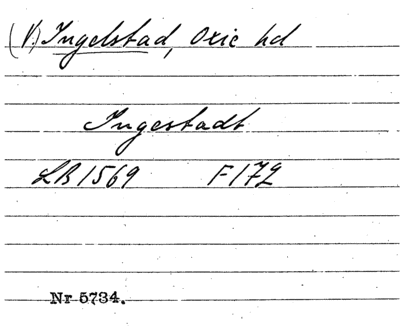 (V.) Ingelstad, Oxie hd
Ingestadt
LB 1569 F 172
Nr 5734.